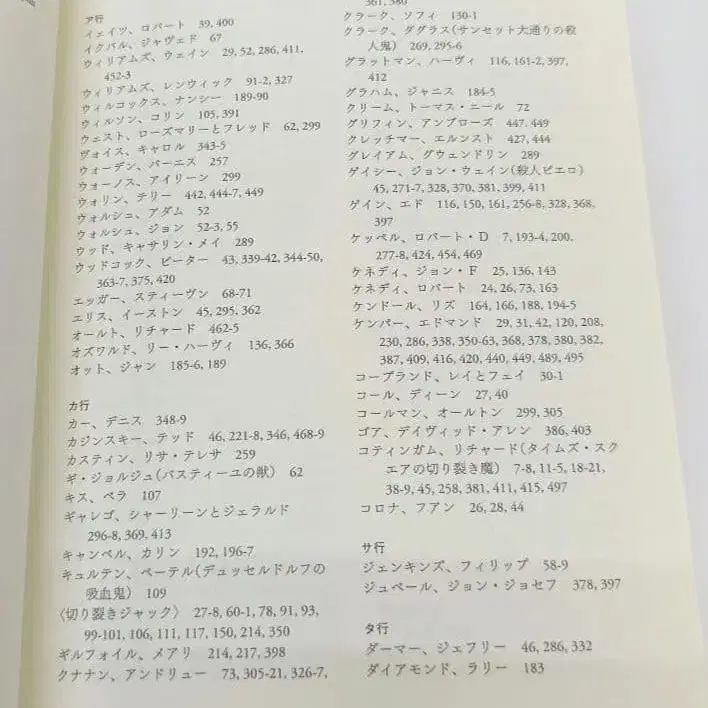 ア行
イェイツ、ロバート 39, 400
イクバル、ジャヴェド 67
ウィリアムズ、ウェイン 29, 52, 286, 411,
452-3
ウィリアムズ、レンウィック 91-2, 327
ウィルコックス、ナンシー 189-90
ウィルソン、コリン 105, 391
ウェスト、ローズマリーとフレッド 62, 299
ヴォイス、キャロル 343-5
ウォーデン、バーニス 257
ウォーノス、アイリーン 299
ウォリン、テリー 442, 444-7, 449
ウォルシュ、アダム 52
ウォルシュ、ジョン 52-3, 55
ウッド、キャサリン・メイ 289
ウッドコック、ピーター 43, 339-42, 344-50,
363-7, 375, 420
エッガー、スティーヴン 68-71
エリス、イーストン 45, 295, 362
オールト、リチャード 462-5
オズワルド、リー・ハーヴィ 136, 366
オット、ジャン 185-6, 189
カ行
カー、デニス 348-9
カジンスキー、テッド 46, 221-8, 346, 468-9
カスティン、リサ・テレサ 259
ギ・ジョルジュ(バスティーユの獣) 62
キス、ベラ 107
ギャレゴ、シャーリーンとジェラルド
296-8, 369, 413
キャンベル、カリン 192, 196-7
キュルテン、ペーテル(デュッセルドルフの
吸血鬼) 109
〈切り裂きジャック〉 27-8, 60-1, 78, 91, 93,
99-101, 106, 111, 117, 150, 214, 350
ギルフォイル、メアリ 214, 217, 398
クナナン、アンドリュー 73, 305-21, 326-7,
361, 380
クラーク、ソフィ 130-1
クラーク、ダグラス(サンセット大通りの殺
人鬼) 269, 295-6
グラットマン、ハーヴィ 116, 161-2, 397,
412
グラハム、ジャニス 184-5
クリーム、トーマス・ニール 72
グリフィン、アンブローズ 447, 449
クレッチマー、エルンスト 427, 444
グレイアム、グウェンドリン 289
ゲイシー、ジョン・ウェイン(殺人ピエロ)
45, 271-7, 328, 370, 381, 399, 411
ゲイン、エド 116, 150, 161, 256-8, 328, 368,
397
ケッペル、ロバート・D 7, 193-4, 200,
277-8, 424, 454, 469
ケネディ、ジョン・F 25, 136, 143
ケネディ、ロバート 24, 26, 73, 163
ケンドール、リズ 164, 166, 188, 194-5
ケンパー、エドマンド 29, 31, 42, 120, 208,
230, 286, 338, 350-63, 368, 378, 380, 382,
387, 409, 416, 420, 440, 449, 489, 495
コープランド、レイとフェイ 30-1
コール、ディーン 27, 40
コールマン、オールトン 299, 305
ゴア、デイヴィッド・アレン 386, 403
コティンガム、リチャード(タイムズ・スク
エアの切り裂き魔) 7-8, 11-5, 18-21,
38-9, 45, 258, 381, 411, 415, 497
コロナ、フアン 26, 28, 44
サ行
ジェンキンズ、フィリップ 58-9
ジュベール、ジョン・ジョセフ 378, 397
タ行
ダーマー、ジェフリー 46, 286, 332
ダイアモンド、ラリー 183